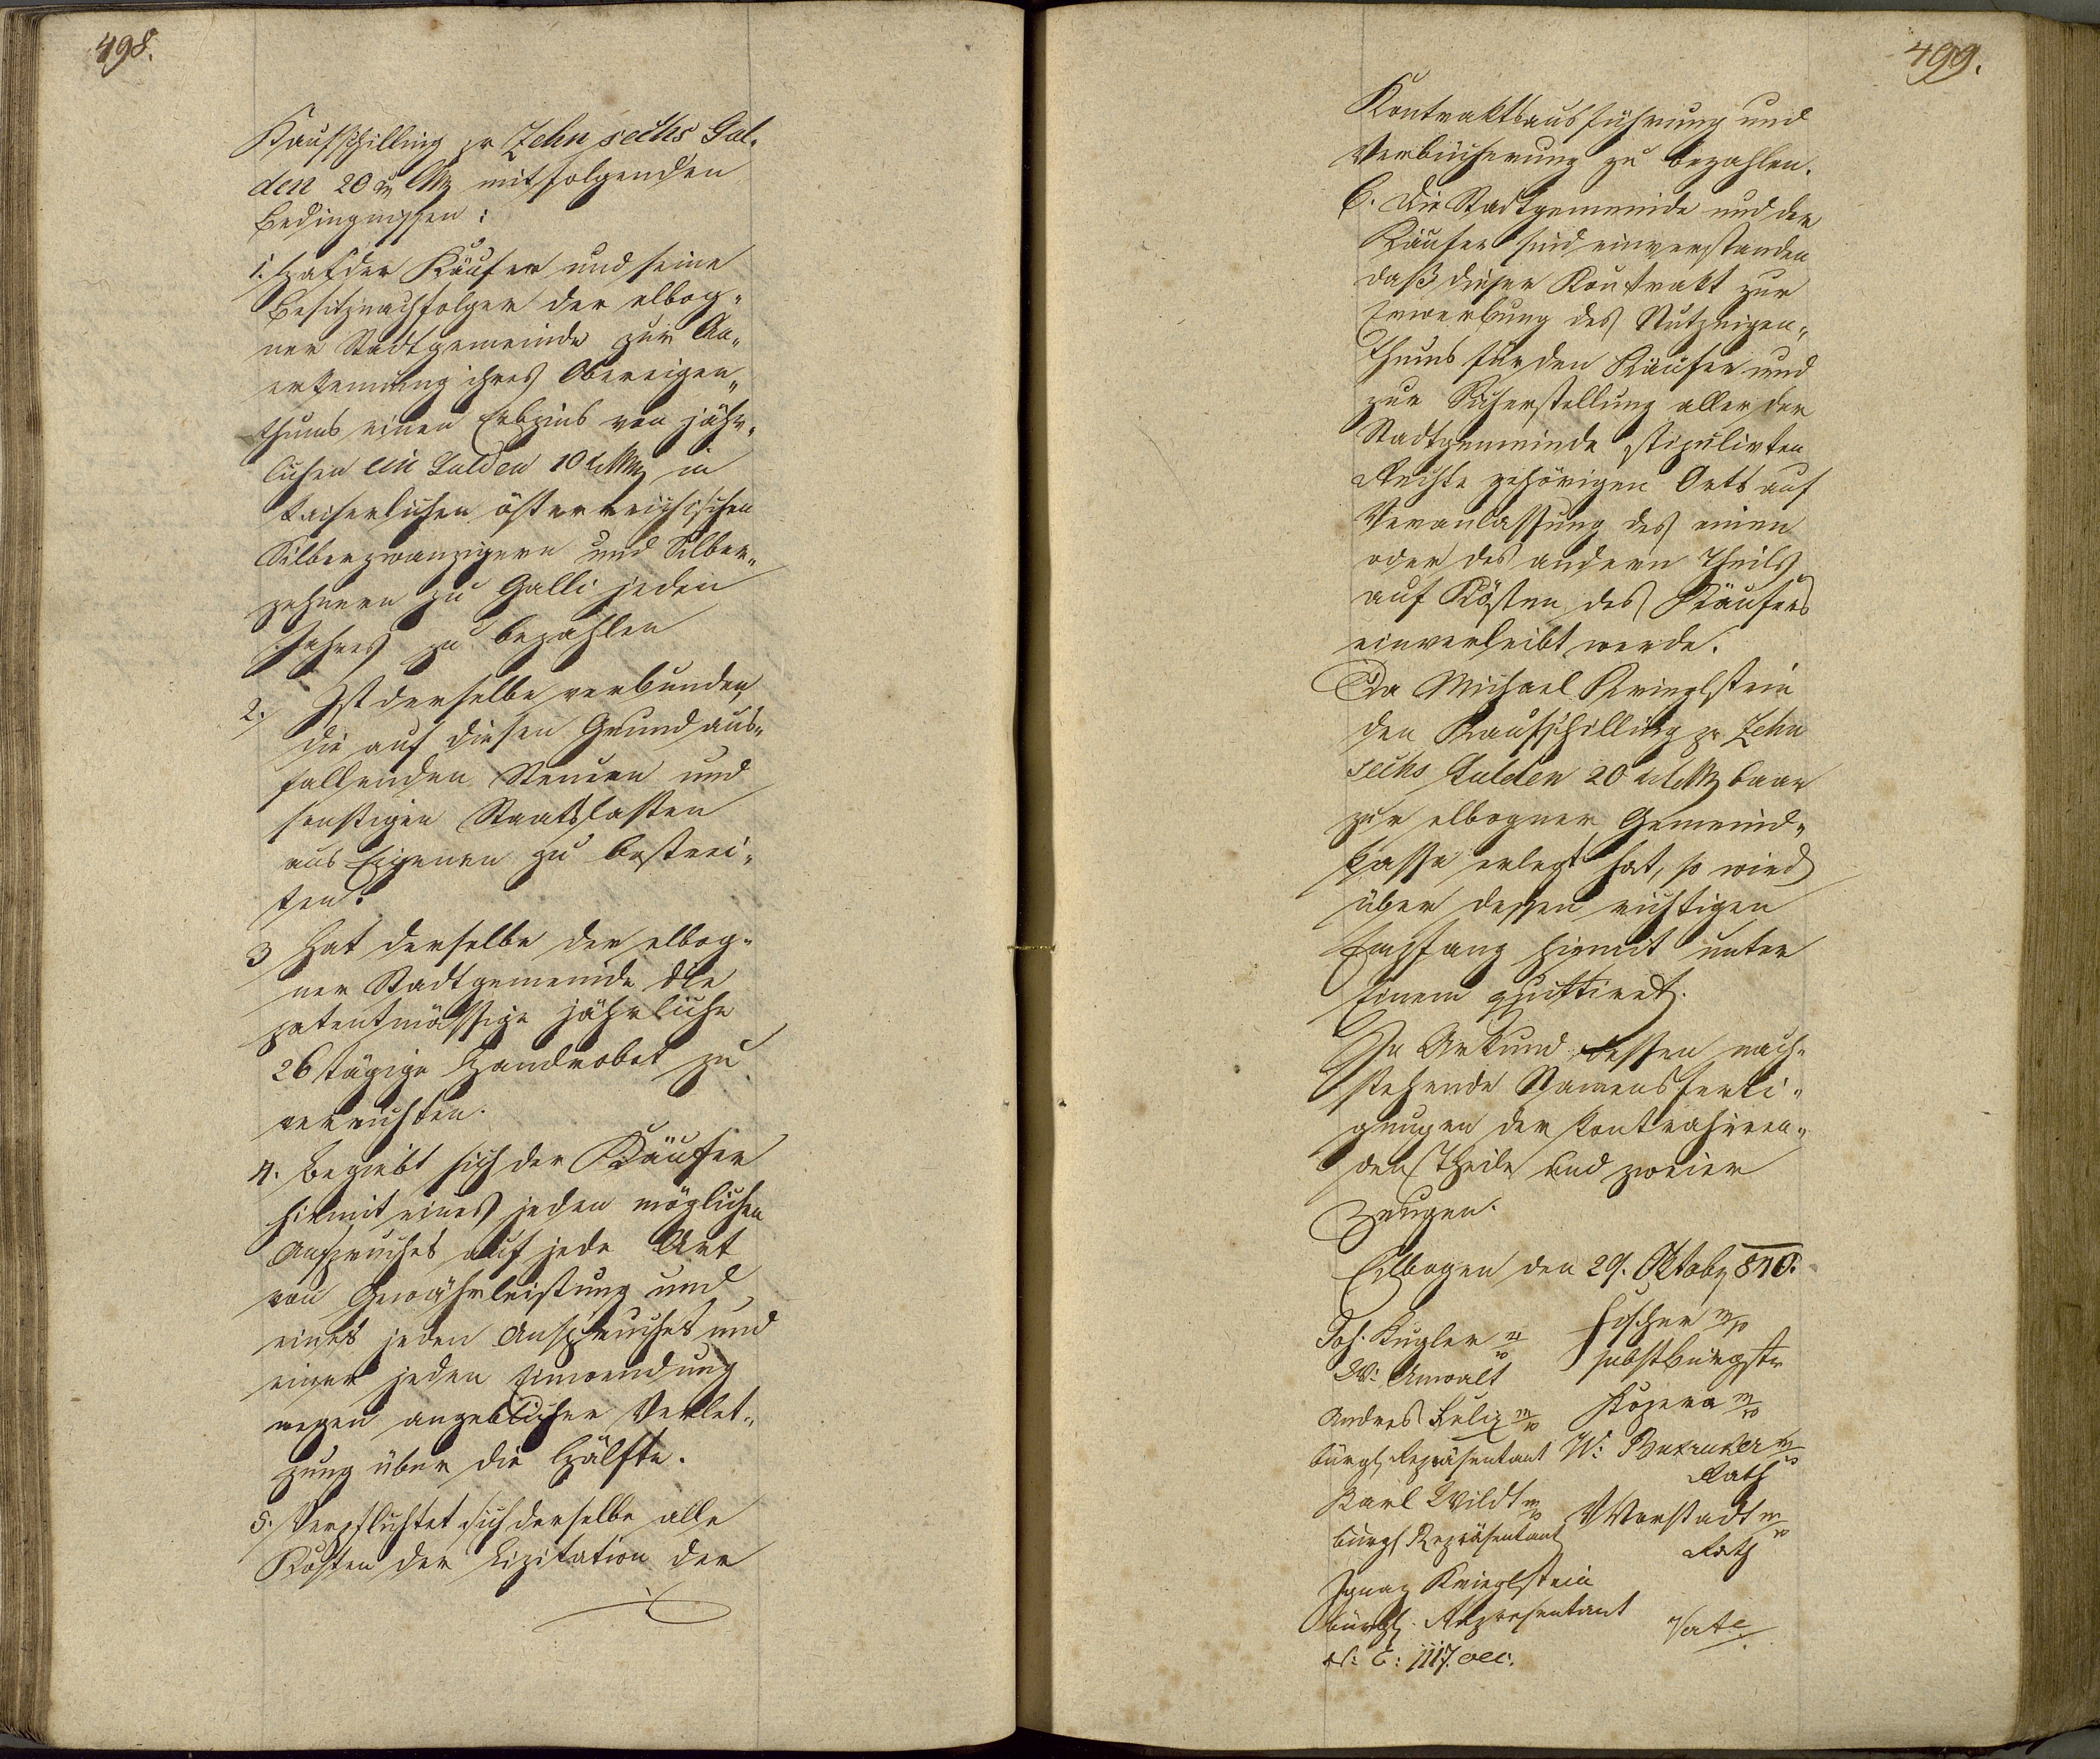 498.
Kaufschilling pr Zehn sechs Gul-
den 20 xr CMz mit folgenden
Bedingnissen:
1. Hat der Käufer und seine
Besitznachfolger der elbog-
ner Stadtgemeinde zur An-
erkennung ihres Obereigen-
thums einen Erbzins von jähr-
lichen ein Gulden 10 xr CMz in
kaiserlichen österreichischen
Silberzwanzigern und Silber-
zehnern zu Galli jeden
Jahres zu bezahlen
2. Ist derselbe verbunden,
die auf diesen Grund aus-
fallenden Steuern und
sonstigen Staatslasten
aus Eigenen zu bestrei-
ten.
3 Hat derselbe der elbog-
ner Stadtgemeinde die
patentmässige jährliche
26 tägige Handrobot zu
verrichten.
4. Begiebt sich der Käufer
hiemit eines jeden möglichen
Anspruches auf jede Art
von Gewährleistung und
eines jeden Anspruches und
einer jeden Einwendung
wegen angeblicher Verlet-
zung über die Hälfte.
5. Verpflichtet sich derselbe alle
Kosten der Lizitation der
499.
Kontraktsausführung und
Verbücherung zu bezahlen.
6. Die Stadtgemeinde und der
Käufer sind einverstanden
daß dieser Kontrakt zur
Erwerbung des Nutzeigen-
thums für den Käufer und
zur Sicherstellung aller der
Stadtgemeinde stipulirten
Rechte gehörigen Orts auf
Veranlassung des einen
oder des andern Theils
auf Kösten des Käufers
einverleibt werde.
Da Michael Krieglstein
den Kaufschilling pr Zehn
sechs Gulden 20 xr CMz baar
zur elbogner Gemeind-
kasse erlegt hat, so wird
über dessen richtigen
Empfang hiemit unter
Einem quittiret.
In Urkund dessen nach-
stehende Namensferti-
gungen der kontrahiren-
den Theile und zweier
Zeugen.
Elbogen den 29. Oktober 840.
Joh. Kugler m/p
W: Anwalt
Andres Felix m/p
bürgl. Repräsentant
Karl Wildt m/p
bürgl. Repräsentant
Ignaz Krieglstein
bürgl. Representant
N: E: 1117. oec:
Fischer m/p
m/p
W: m/p
Rath
Vorstadt m/p
Rath